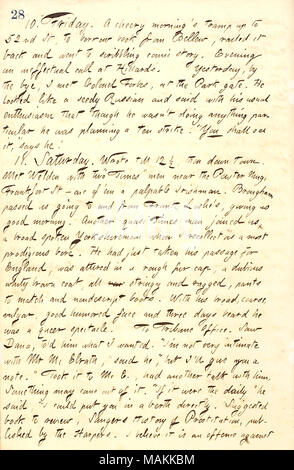 28
10. Friday. A cheery morning's tramp up to
52nd St. to borrow book from Bellew, walked it
back and went to scribbling comic story. Evening
an ineffectual call at Hillards. Yesterday, by
the bye, I met Colonel Forbes, at the Park gate. He
looked like a seedy Russian and said with his usual
enthusiasm that though he wasn't doing anything par-
ticular he was planning a ten strike! "You shall see
it," says he!
18. Saturday. Wrote till 12 ½ then down town.
Met Welden with two "Times" men near the Pewter Mug,
Frankfort St — one of 'em a palpable Irishman. Brougham
passed us going to and from Frank Leslie's, giving us
good morning. Another quasi Times man joined us,
a broad spoken Yorkshireman whom I recollect as a most
prodigious bore. He had just taken his passage for
England, was attired in a rough fur cap, a dubious
whity brown coat all stringy and ragged, pants
to match and nondescript boots. With his broad, coarse
vulgar, good humored face and three days beard he
was a queer spectacle. To Tribune Office. Saw
Dana, told him what I wanted. "I'm not very intimate
with Mr Mc Elrath," said he, "but I'll give you a
note. Took it to Mc E., had another talk with him,
Something may come out of it. "If it were the daily" he
said "I could put you in a berth directly. Suggested
book to review, Sanger's History of Prostitution, pub-
lished by the Harpers. I believe it is an offence against
alamy
Image ID: MAKKBM
www.alamy.com